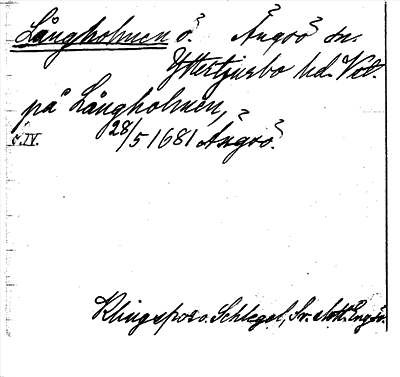 Långholmen ö. Ängsö sn.
Yttertjurbo hd. Vstl.
på Långholmen,
s. IV. 28/5 1681 Ängsö.
Klingspor o. Schlegel, Sv. slott. Engsö.